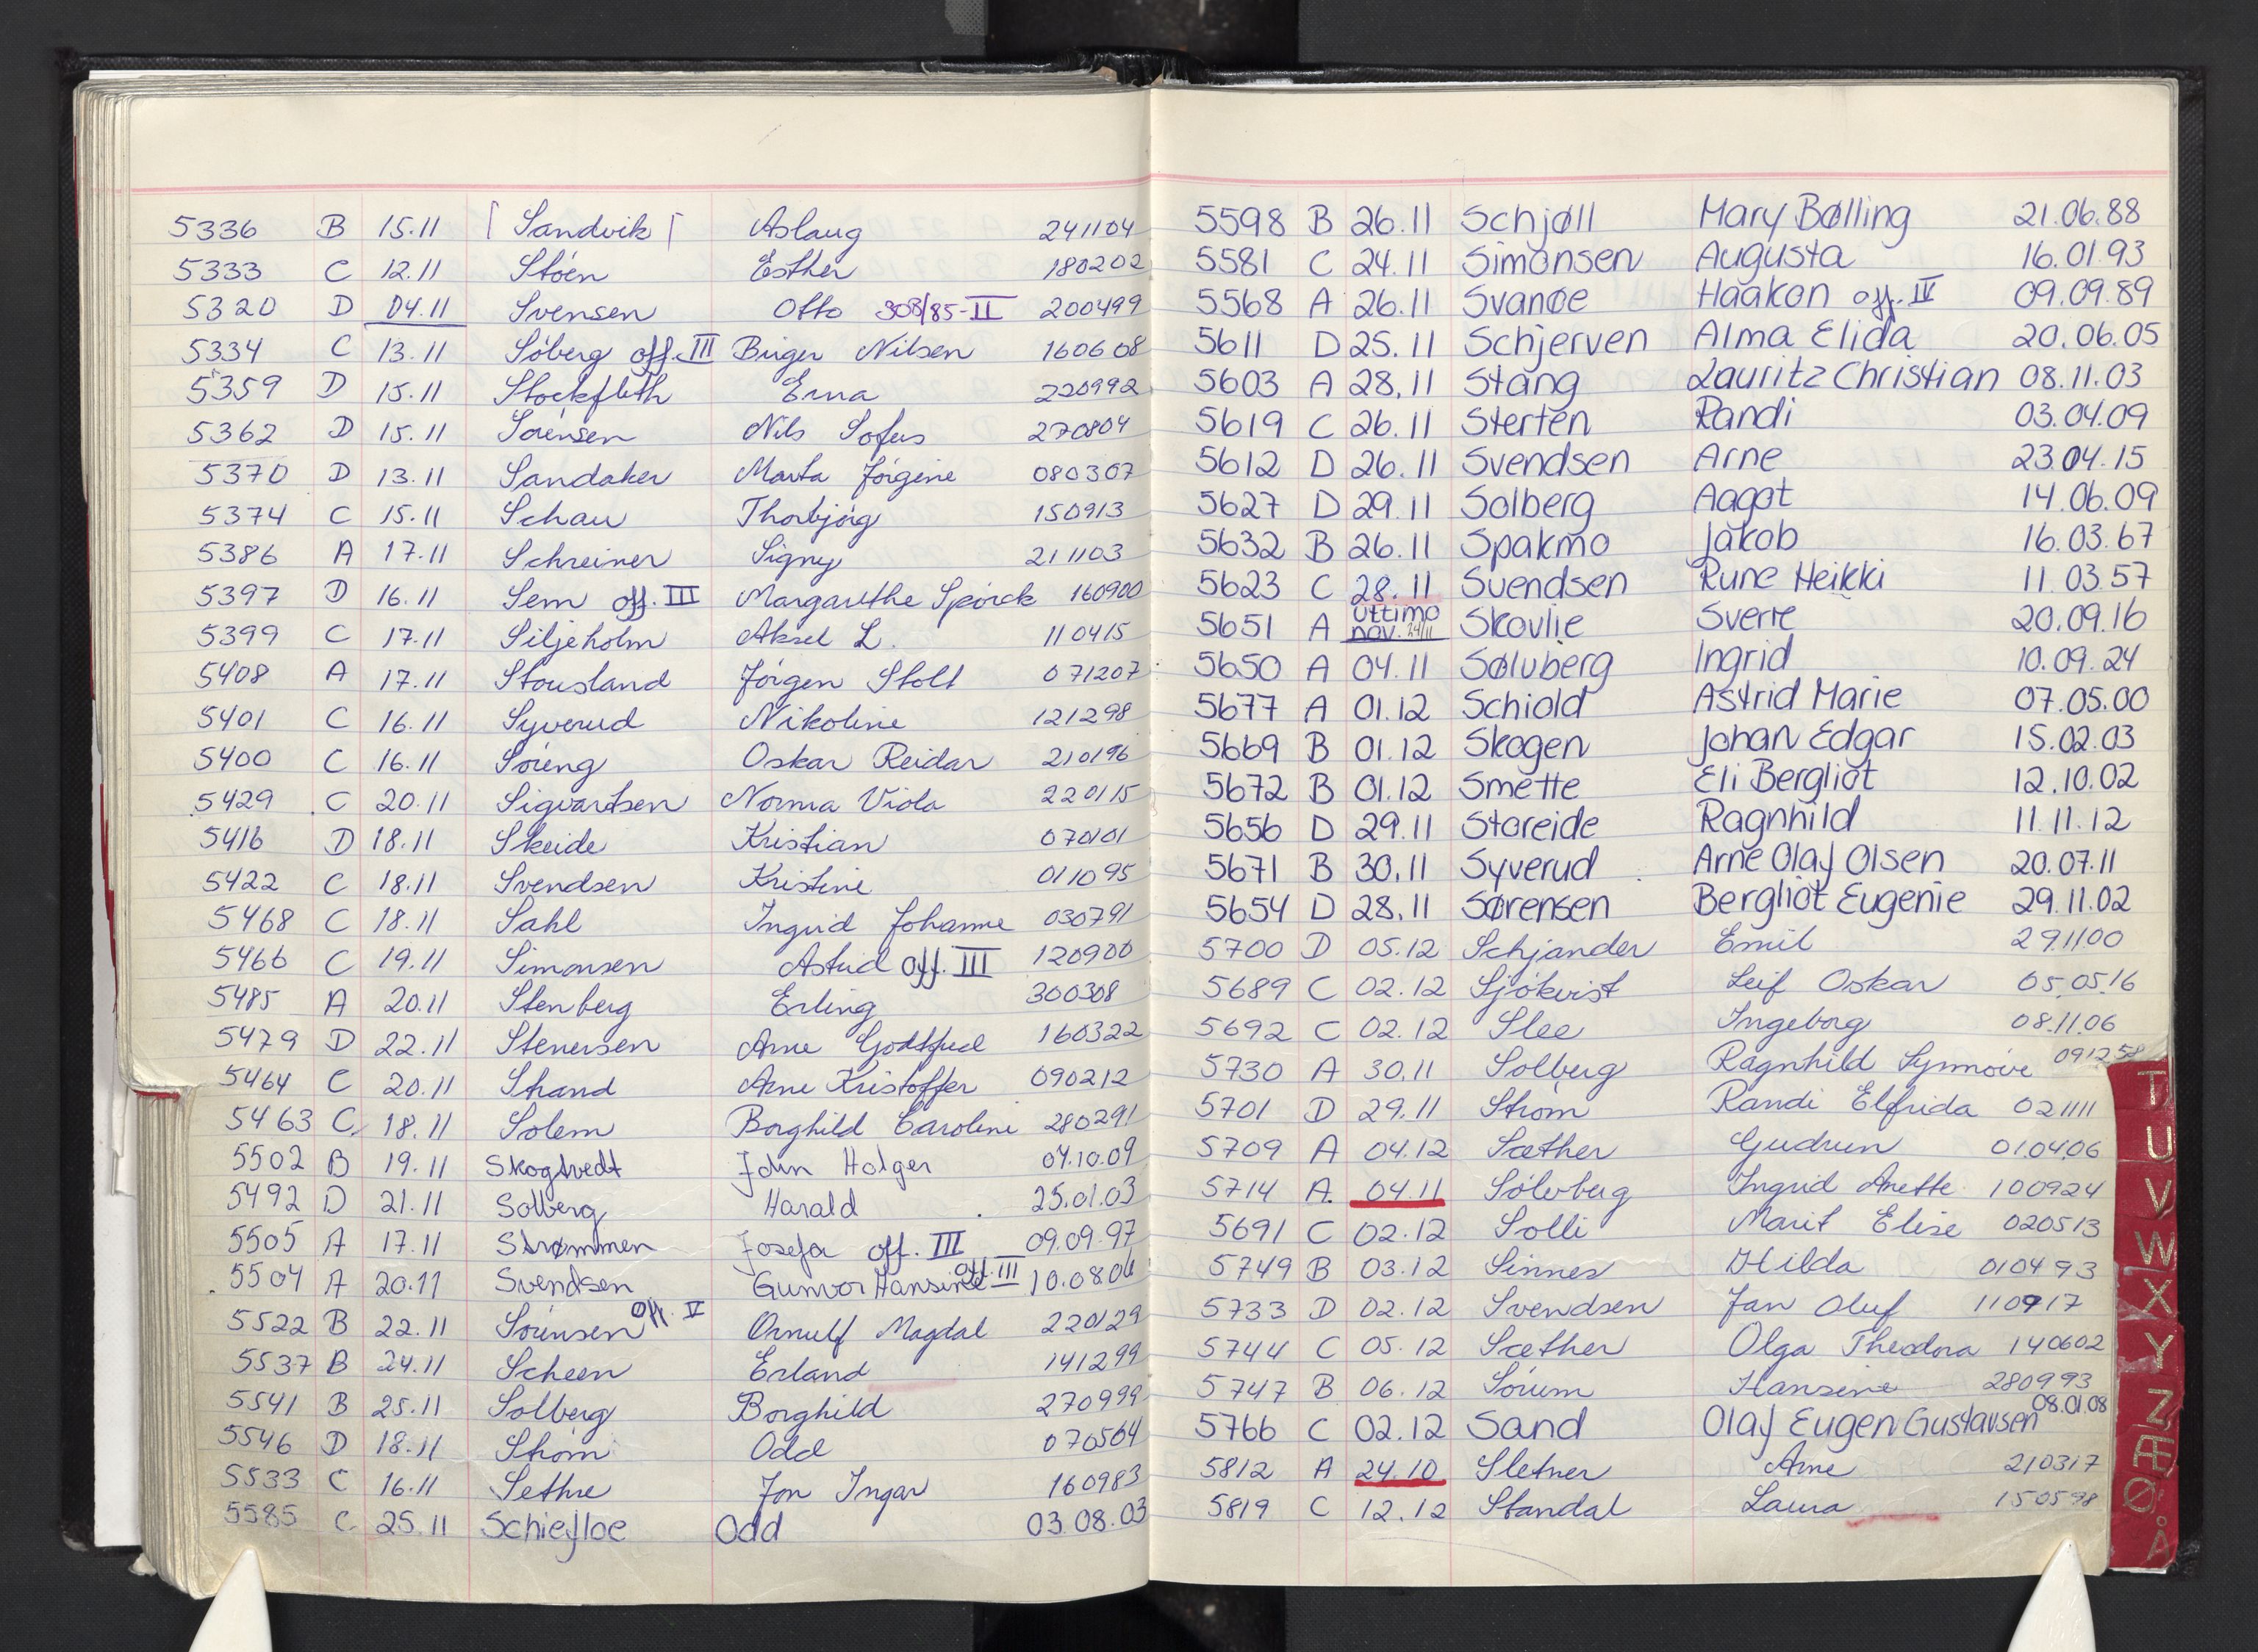 5336 B 15.11 Sandvik Aslaug 241104
5333 C 12.11 Støen Esther 180202
5320 D 04.11 Svensen Otto 308/85-II 200499
5334 C 13.11 Søberg off. III Birger Nilsen 160608
5359 D 15.11 Stockfleth Erna 220992
5362 D 15.11 Sørensen Nils Sofus 270804
5370 D 13.11 Sandaker Marta Jørgine 080307
5374 C 15.11 Schau Thorbjørg 150913
5386 A 17.11 Schreiner Signy 211103
5397 D 16.11 Sem off. III Margarethe Spørck 160900
5399 C 17.11 Siljeholm Aksel L. 110415
5408 A 17.11 Stousland Jørgen Stolt 071207
5401 C 16.11 Syverud Nikoline 121298
5400 C 16.11 Søreng Oskar Reidar 210196
5429 C 20.11 Sigvartsen Norma Viola 220115
5416 D 18.11 Skeide Kristian 070101
5422 C 18.11 Svendsen Kristine 011095
5468 C 18.11 Sahl Ingrid Johanne 030791
5466 C 19.11 Simonsen Astrid off. III 120900
5485 A 20.11 Stenberg Erling 300308
5479 D 22.11 Stenersen Arne Godtfred 160322
5464 C 20.11 Strand Arne Kristoffer 090212
5463 C 18.11 Solem Borghild Caroline 280291
5502 B 19.11 Skogtvedt John Holger 04.10.09
5492 D 21.11 Solberg Harald 25.01.03
5505 A 17.11 Strømmen Josefa off. III 09.09.97
5504 A 20.11 Svendsen Gunvor Hansine off. III 10.08.06
5522 B 22.11 Sørensen off. V Ornulf Magdal 220129
5537 B 24.11 Scheen Erland 141299
5541 B 25.11 Solberg Borghild 270999
5546 D 18.11 Strøm Odd 070504
5533 C 16.11 Sethre Jon Ingar 160983
5585 C 25.11 Schiefloe Odd 03.08.03
5598 B 26.11 Schjøll Mary Bølling 21.06.88
5581 C 24.11 Simonsen Augusta 16.01.93
5568 A 26.11 Svanøe Haakon off. IV 09.09.89
5611 D 25.11 Schjerven Alma Elida 20.06.05
5603 A 28.11 Stang Lauritz Christian 08.11.03
5619 C 26.11 Sterten Randi 03.04.09
5612 D 26.11 Svendsen Arne 23.04.15
5627 D 29.11 Solberg Aagot 14.06.09
5632 B 26.11 Spakmo Jakob 16.03.67
5623 C 28.11 Svendsen Rune Heikki 11.03.57
5651 A uttimo nov. 24/11 Skovlie Sverre 20.09.16
5650 A 04.11 Sølvberg Ingrid 10.09.24
5677 A 01.12 Schiold Astrid Marie 07.05.00
5669 B 01.12 Skogen Johan Edgar 15.02.03
5672 B 01.12 Smette Eli Bergliot 12.10.02
5656 D 29.11 Storeide Ragnhild 11.11.12
5671 B 30.11 Syverud Arne Olaf Olsen 20.07.11
5654 D 28.11 Sørensen Bergliot Eugenie 29.11.02
5700 D 05.12 Schjander Emil 291100
5689 C 02.12 Sjøkvist Leif Oskar 05.05.16
5692 C 02.12 Slee Ingeborg 08.11.06
5730 A 30.11 Solberg Ragnhild Synnøve 091252
5701 D 29.11 Strøm Randi Elfrida 021111
5709 A 04.12 Sæther Gudrun 01.04.06
5714 A. 04.11 Sølvberg Ingrid Anette 100924
5691 C 02.12 Solli Marit Elise 020513
5749 B 03.12 Sinnes Hilda 010493
5733 D 02.12 Svendsen Jan Oluf 110917
5744 C 05.12 Sæther Olga Theodora 140602
5747 B 06.12 Sørum Hansine 280993
5766 C 02.12 Sand Olaf Eugen Gustavsen 08.01.08
5812 A 24.10 Sletner Arne 210317
5819 C 12.12 Standal Laura 150598
T
U
V
W
X
Y
Z
Æ
Ø
Å